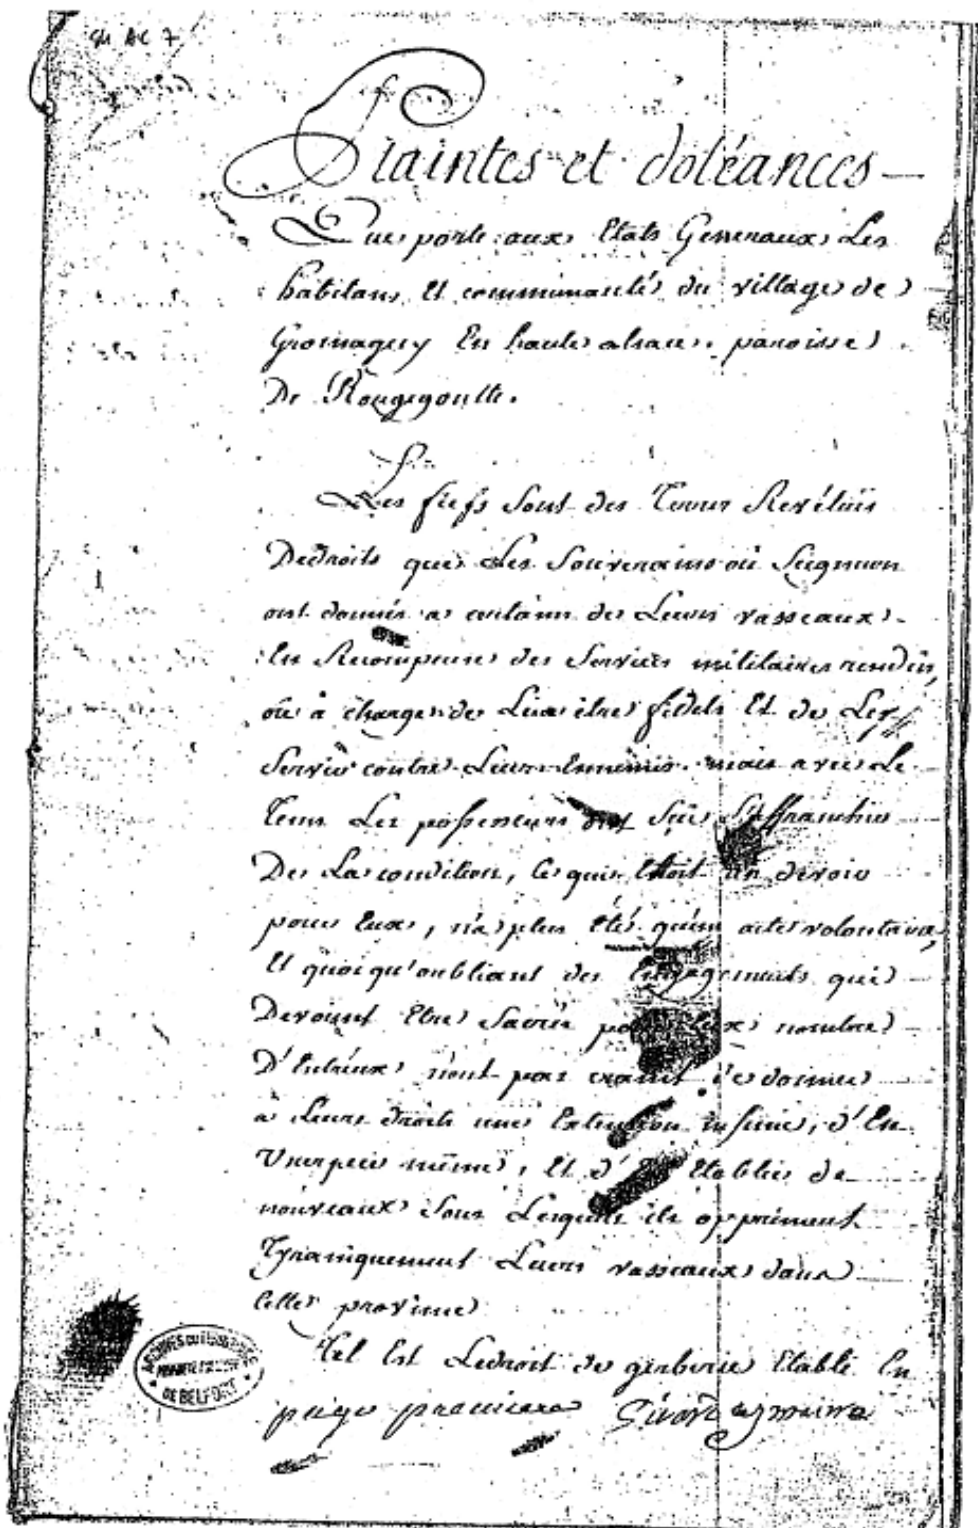 Plaintes et doléances
Que porte aux Etats Generaux Les
habitans Et communautés du village de
Gromagny En haute alsace paroisse
De Rougegoutte.
Les fiefs Sont des Terres Revétües
Dedroits que Les Souverains où Seigneurs
ont donnés a de Leurs vasseaux
En Recompense des Services militaires rendus,
ou à charge de Leur être fidels Et de Les
Servir contre Leurs Ennemis. mais avec Le
Tems Les possesseurs ont Sçus S'affranchir
De La condition, ce qui Etoit un devoir
pour Eux, n'a plus Eté qu'un acte volontaire,
Et quoiqu'oubliant des Engagements qui
Devoient Etre Sacrés pour Eux nombre
D'Entreux n'ont pas craint de donner
à Leurs droits une Extention infinie, d'En
Usurper même, Et d'En Etablir de
nouveaux Sous Lesquels ils oppriment
Tyraniquement Leurs vasseaux dans
cette province
Tel Est Ledroit de gerberie Etabli En
page premiere Girard maire
DE BELFORT